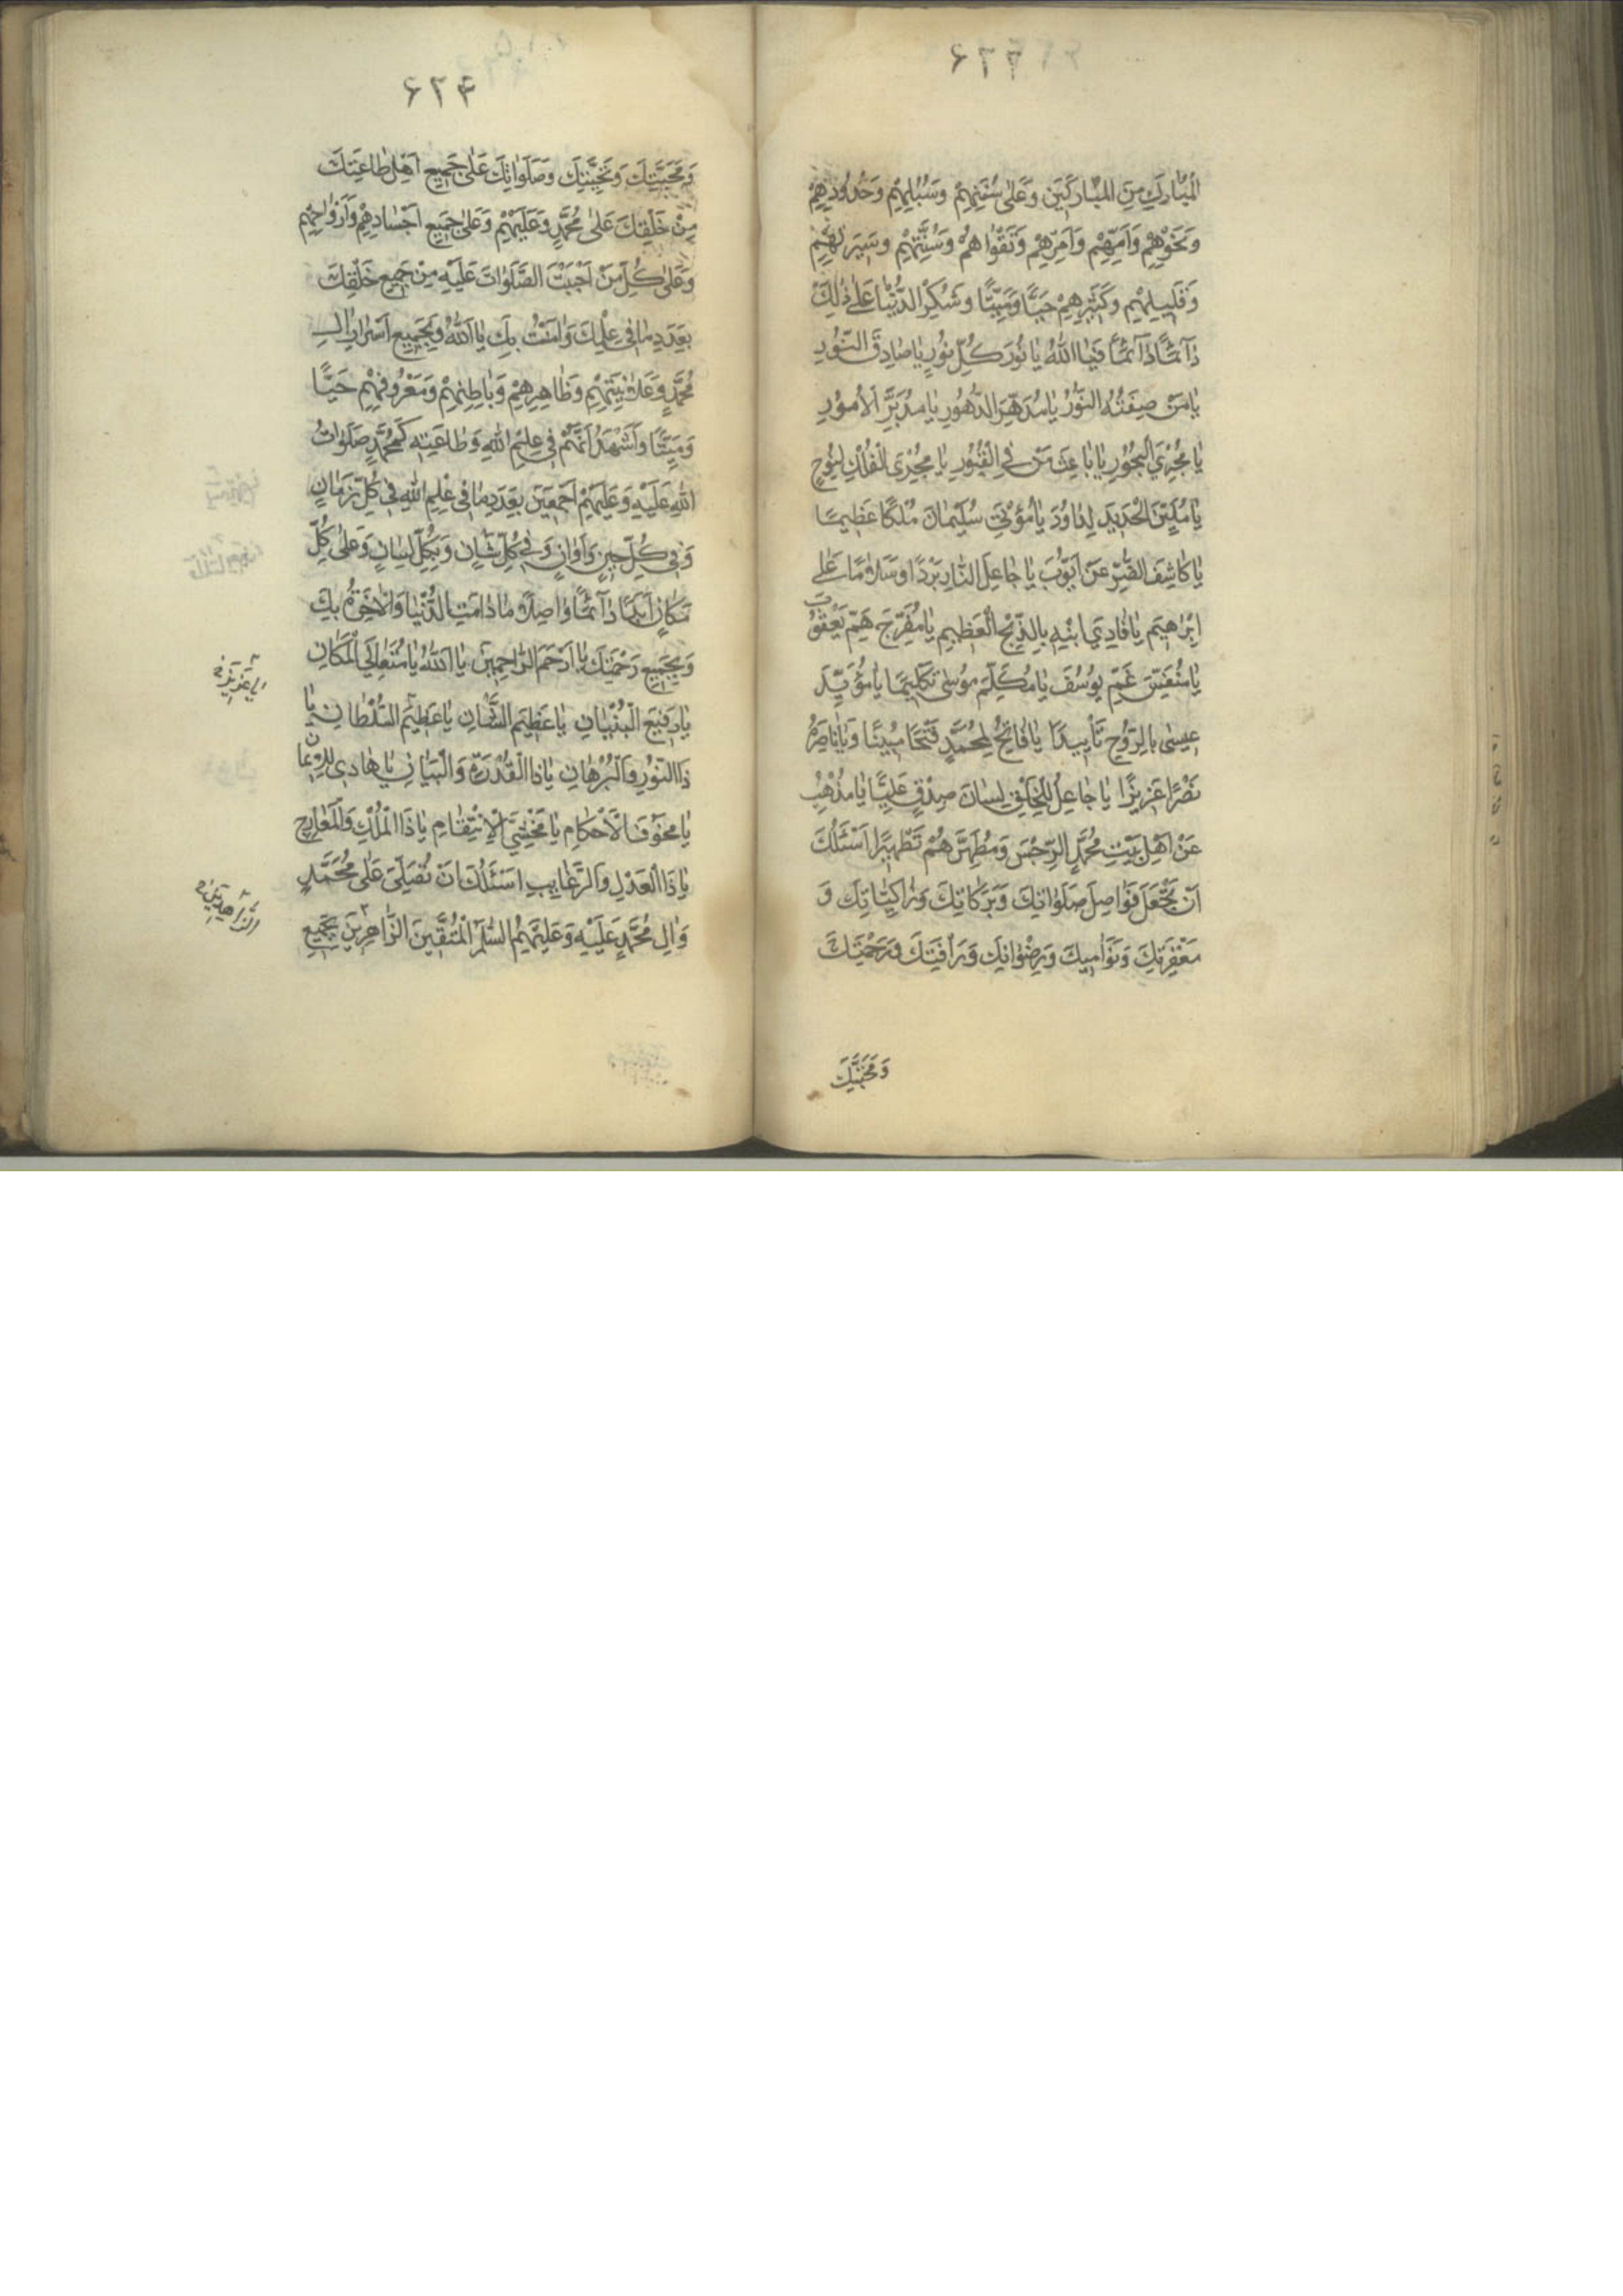 ۶۲۳
المُبٰارَكِ مِنَ المُبٰارَكَيَن وَعَلىٰ سُنَنِهِمْ وَسُبُلِهِمْ وَحُدُودِهِمْ
وَنَحْوِهِمْ وَاَمِّهِمْ وَآمِرِهِمْ وَتَقْوٰاهُمْ وَسُنَّتِهِمْ وَسِيَرِهِمْ
وَقَلٖيلِهِمْ وَكَثٖيرِهِمْ حَيًّا وَمَيِّتًا وَشُكِرَ الدُّنْيٰا عَلىٰ ذٰلِكَ
دٰآئمًا دٰآئمًا فَيٰا اَللّٰهُ يٰا نُورَ كُلِّ نُورٍ يٰا صٰادِقَ النُّورِ
يٰا مَنْ صِفَتُهُ النُّورُ يٰا مُدَهِّرَ الدُّهُورِ يٰا مُدَبِّرَ الاُمُورِ
يٰا مُجْرِيَ الْبُحُورِ يٰا بٰاعِثَ مَنْ فِي الْقُبُورِ يٰا مُجْرِىَ الْفُلْكِ لِنُوحٍ
يٰا مُلَيِّنَ الْحَدٖيدِ لِدٰاوُدَ يٰا مُؤْتِيَ سُلَيْمٰانَ مُلْكًا عَظٖيمًا
يٰا كٰاشِفَ الضُّرِّ عَنْ اَيّوُبَ يٰا جٰاعِلَ النّٰارِ بَرْدًا وَسَلٰامًا عَلىٰ
اِبْرٰاهٖيمَ يٰا فٰادِيَ ابْنِهِ بِالذِّبْحِ الْعَظٖيمِ يٰا مُفَرِّجَ هَمِّ يَعْقُوبَ
يٰا مُنَفِّسَ غَمِّ يوُسُفَ يٰا مُكَلِّمَ موُسىٰ تَكْلٖيمًا يٰا مُؤَيِّدَ
عٖيسىٰ بِالرّوُحِ تَأْيٖيدًا يٰا فٰاتِحُ لِمُحَمَّدٍ فَتْحًا مُبٖينًا وَيٰا نٰاصِرُهُ
نَصْرًا عَزٖيزًا يٰا جٰاعِلُ لِلْخَلْقِ لِسٰانَ صِدْقٍ عَلِيًّا يٰا مُذْهِبُ
عَنْ اَهْلِ بَيْتِ مُحَمَّدٍ الرِّجْسَ وَمُطَهِّرَهُمْ تَطْهٖيرًا اَسْئَلُكَ
اَنْ تَجْعَلَ فَوٰاصِلَ صَلَوٰاتِكَ وَبَرَكٰاتِكَ وَزٰاكِيٰاتِكَ وَ
مَغْفِرَتِكَ وَنَوٰامِيكَ وَرِضْوٰانِكَ وَرَأْفَتِكَ وَرَحْمَتِكَ
وَمَحَبَّتِكَ
۶۲۴
وَمَحَبَّتِكَ وَتَحِيَّتِكَ وَصَلَوٰاتِكَ عَلىٰ جَمٖيعِ اَهْلِ طٰاعَتِكَ
مِنْ خَلْقِكَ عَلىٰ مُحَمَّدٍ وَعَلَيْهِمْ وَعَلىٰ جَمٖيعِ اَجْسٰادِهِمْ وَاَرْوٰاحِهِمْ
وَعَلىٰ كُلِّ مَنْ اَحْبَبْتَ الصَّلَوٰاتَ عَلَيْهِ مِنْ جَمٖيعِ خَلْقِكَ
بِعَدَدِ مٰا فٖي عِلْمِكَ وَاٰمَنْتُ بِكَ يٰا اَللّٰهُ وَبِجَمٖيعِ اَسْرٰارِ اٰلِ
مُحَمَّدٍ وَعَلٰانِيَتِهِمْ وَظٰاهِرِهِمْ وَبٰاطِنِهِمْ وَمَعْرُوفِهِمْ حَيًّا
وَمَيِّتًا وَاَشْهَدُ اَنَّهُمْ فٖي عِلْمِ اللّٰهِ وَطٰاعَتِهٖ كَمُحَمَّدٍ صَلَوٰاتُ
اللّٰهِ عَلَيْهِ وَعَلَيْهِمْ اَجْمَعٖينَ بِعَدَدِ مٰا فٖي عِلْمِ اللّٰهِ فٖي كُلِّ زَمٰانٍ
وَفٖي كُلِّ حٖينٍ وَاَوٰانٍ وَفٖي كُلِّ شٰانٍ وَبِكُلِّ لِسٰانٍ وَعَلىٰ كُلِّ
مَكٰانٍ اَبَدًا دٰآئمًا وٰاصِلًا مٰا دٰامَتِ الدُّنْيٰا وَالْاٰخِرَةُ بِكَ
وَبِجَمٖيعِ رَحْمَتِكَ يٰا اَرْحَمَ الرّٰاحِمٖينَ يٰا اَللّٰهُ يٰا مُتَعٰالِيَ الْمَكٰانِ
يٰا رَفٖيعَ الْبُنْيٰانِ يٰا عَظٖيمَ الشَّانِ يٰا عَظٖيمَ السُّلْطٰانِ يٰا
ذَا النُّورِ وَالْبُرْهٰانِ يٰا ذَا الْقُدْرَةِ وَالْبَيٰانِ يٰا هٰادِي لِلْاٖيمٰانِ
يٰا مَخُوفَ الْاَحْكٰامِ يٰا مَخْشِيَّ الْاِنْتِقٰامِ يٰا ذَا الْمُلْكِ وَالْمَعٰارِجِ
يٰا ذَا الْعَدْلِ وَالرَّغٰايِبِ اَسْئَلُكَ اَنْ تُصَلِّيَ عَلىٰ مُحَمَّدٍ
وَاٰلِ مُحَمَّدٍ عَلَيْهِ وَعَلَيْهِمُ السَّلٰمُ الْمُتَّقٖينَ الزّٰاهِرٖينَ بِجَمٖيعِ
يٰا عَزٖيزُ
الزّٰاهِدٖينَ